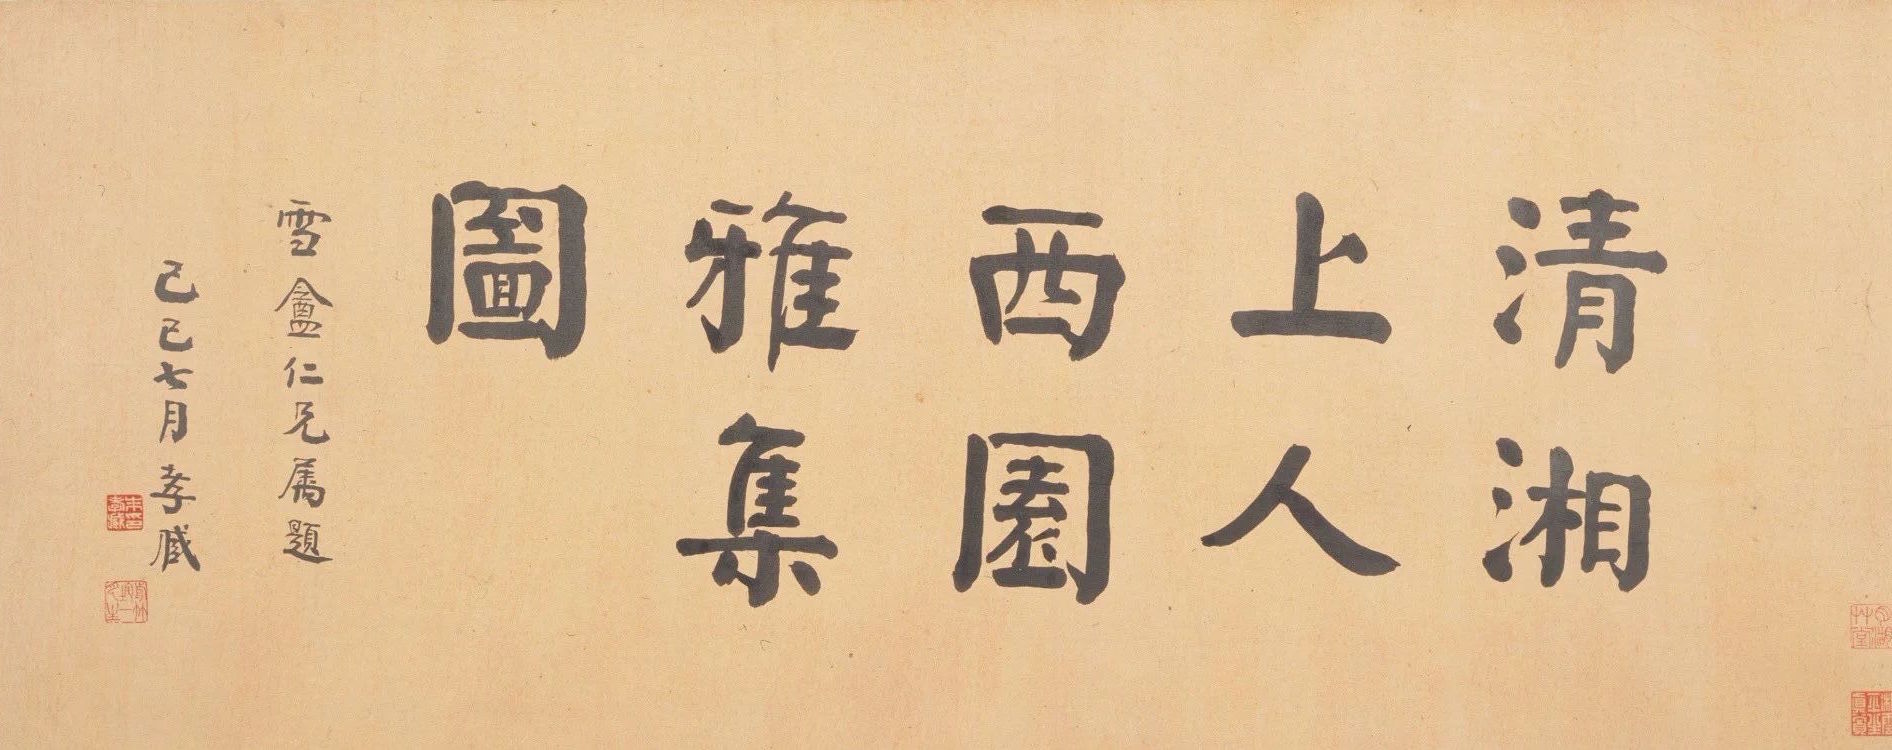 清湘
上人
西園
雅集
圖
雪盦仁兄属題
己巳七月孝臧